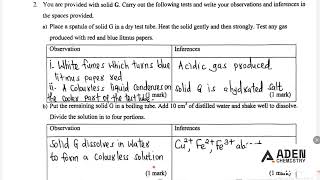 2. You are provided with solid G. Carry out the following tests and write your observations and inferences in
the spaces provided.
a) Place a spatula of solid G in a dry test tube. Heat the solid gently and then strongly. Test any gas
produced with red and blue litmus papers.
Observation
Inferences
i. White fumes which turns blue
litmus paper red
ii. A colourless liquid condenses on
the cooler part of the test tube
(1 mark)
Acidic gas produced
Solid G is a hydrated salt
(1 mark)
b) Put the remaining solid G in a boiling tube. Add 10 cm³ of distilled water and shake well to dissolve.
Divide the solution in to four portions.
Observation
Inferences
Solid G dissolves in water
to form a colourless solution
(1 mark)
Cu²⁺, Fe²⁺, Fe³⁺ ab
(1 mark)
ADEN
CHEMISTRY